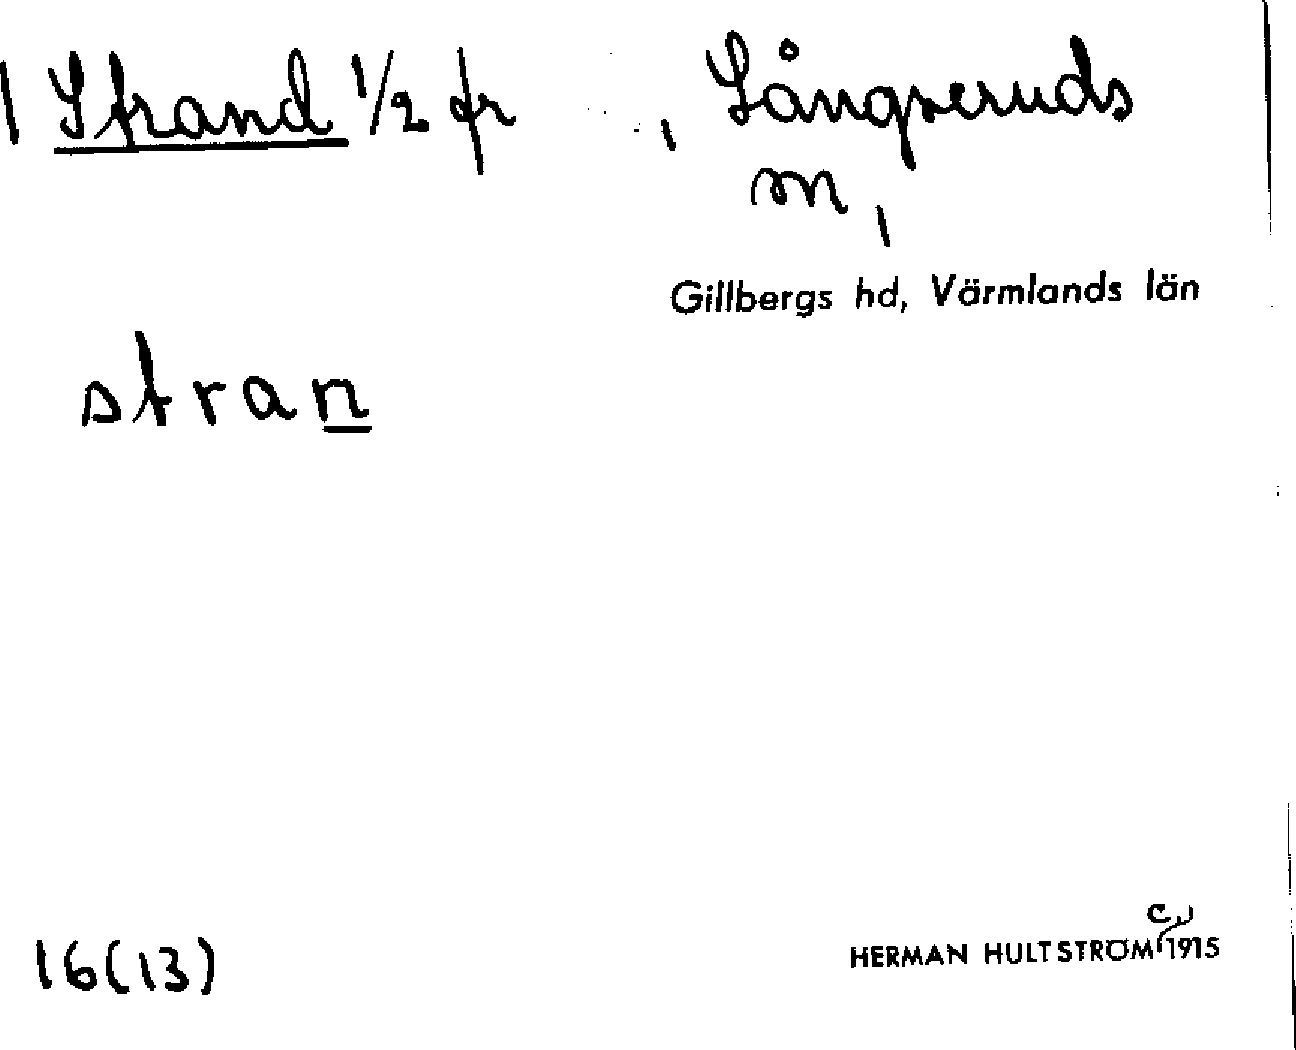 Strand 1/2 fr , Långseruds
sn,
Gillbergs hd, Värmlands län
stran
c.
16(13) HERMAN HULTSTRÖM 1915